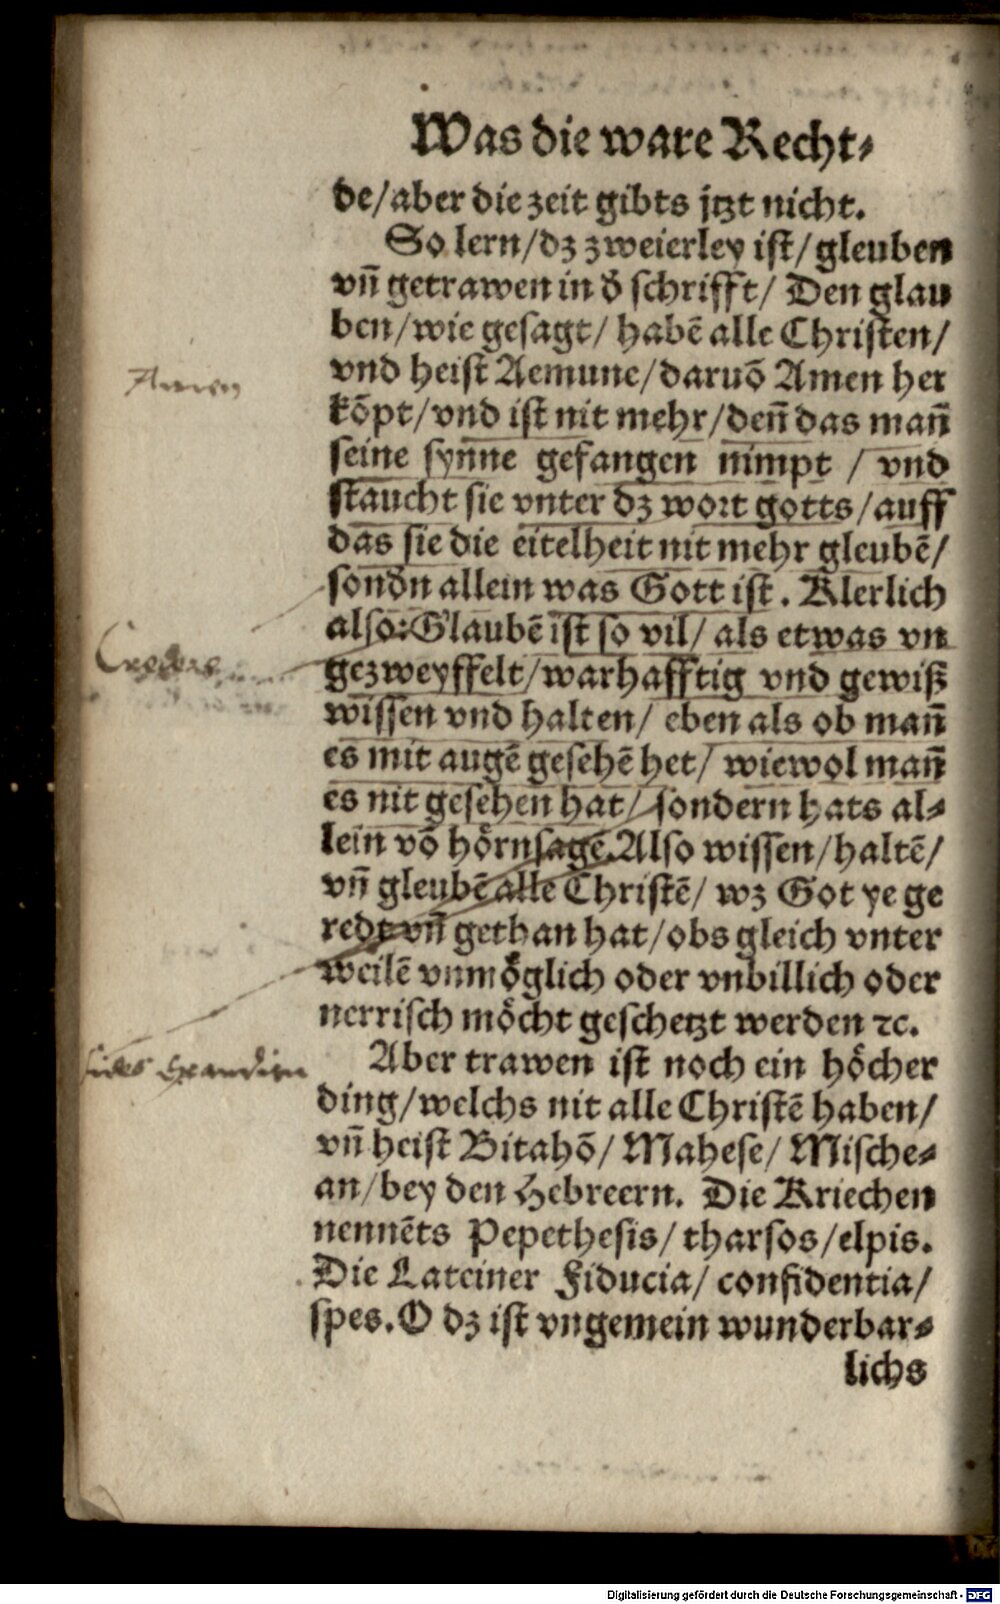 Was die ware Recht⸗
de/ aber die zeit gibts jtzt nicht.
So lern/ dz zweierley ist/ gleuben
vñ getrawen in d̄ schrifft/ Den glau
ben/ wie gesagt/ habē alle Christen/
vnd heist Aemune/ daruō Amen her
kōpt/ vnd ist nit mehr/ deñ das mañ
Amen
seine synne gefangen nimpt / vnd
staucht sie vnter dz wort gotts/ auff
das sie die eitelheit nit mehr gleubē/
sond̄n allein was Gott ist. Klerlich
also: Glaubē ist so vil/ als etwas vn
Credere
gezweyffelt/ warhafftig vnd gewiß
wissen vnd halten/ eben als ob mañ
es mit augē gesehē het/ wiewol mañ
es nit gesehen hat/ sondern hats al⸗
lein vō hörnsagē. Also wissen/ haltē/
vñ gleubē alle Christē/ wz Got ye ge
redt vñ gethan hat/ obs gleich vnter
weilē vnmöglich oder vnbillich oder
nerrisch möcht geschetzt werden ꝛc.
Aber trawen ist noch ein höcher
fides
ding/ welchs nit alle Christē haben/
vñ heist Bitahō/ Mahese/ Mische⸗
an/ bey den Hebreern. Die Kriechen
nennēts Pepethesis/ tharsos/ elpis.
Die Lateiner Fiducia/ confidentia/
spes. O dz ist vngemein wunderbar⸗
lichs
Digitalisierung gefördert durch die Deutsche Forschungsgemeinschaft - DFG